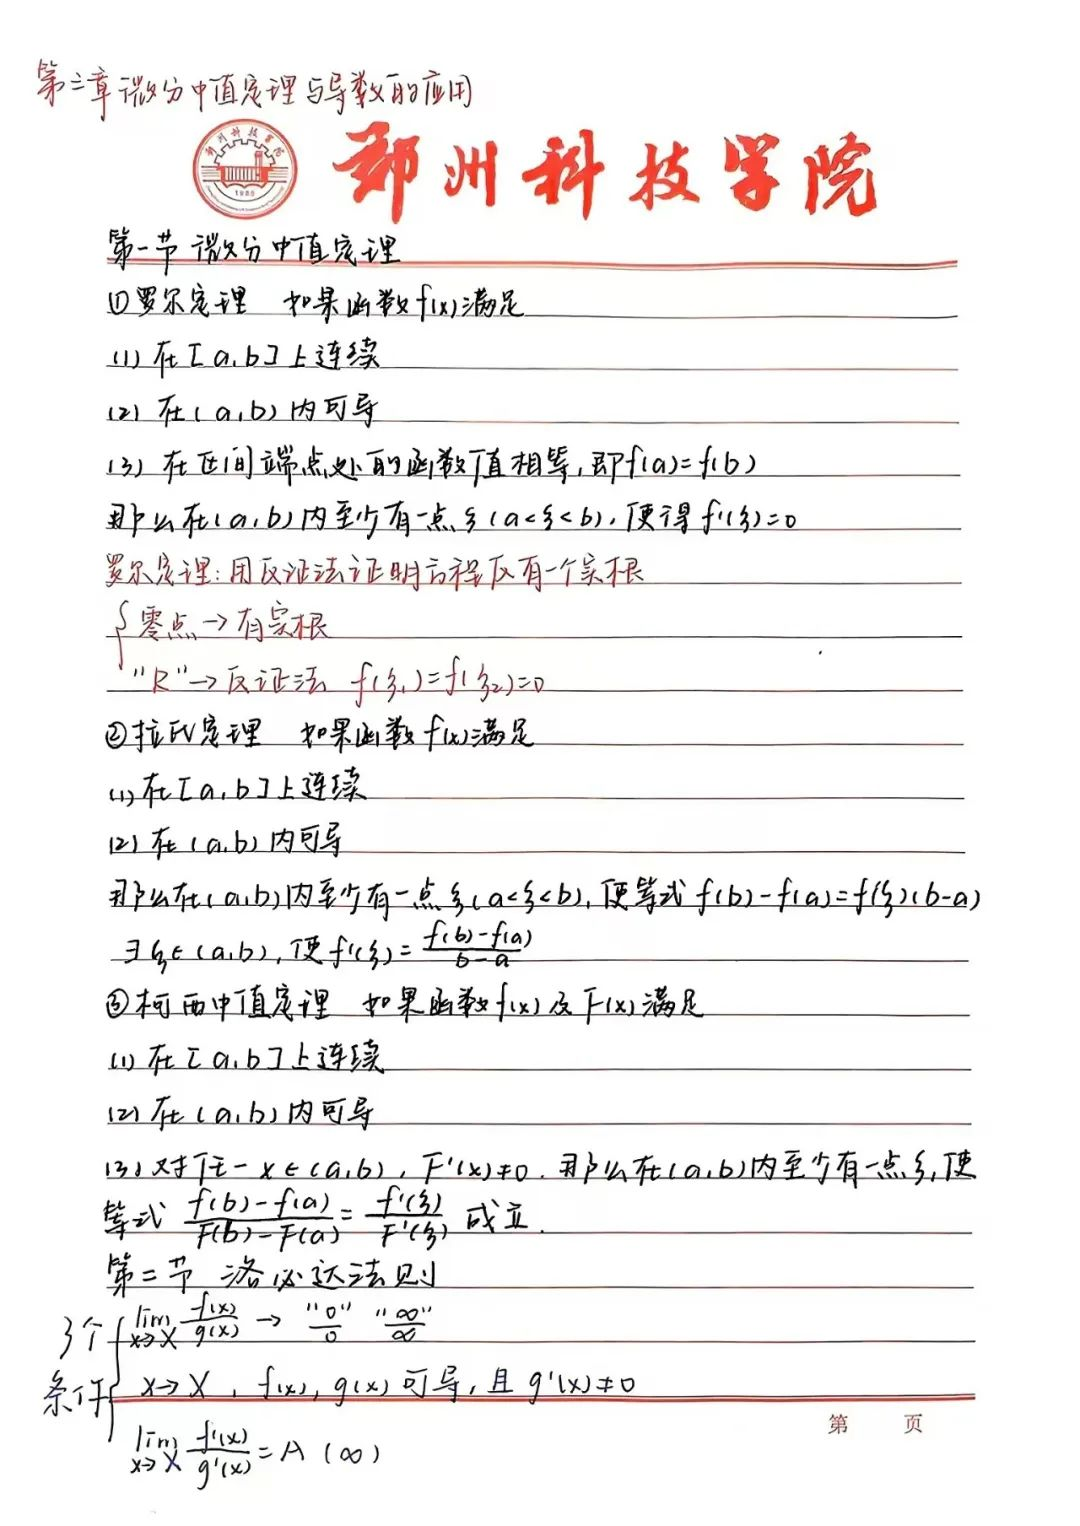 第三章 微分中值定理与导数的应用
郑州科技学院
郑州科技学院
1988
第一节 微分中值定理
①罗尔定理 如果函数f(x)满足
(1) 在[a,b]上连续
(2) 在(a,b)内可导
(3) 在区间端点处的函数值相等,即f(a)=f(b)
那么在(a,b)内至少有一点ξ(a<ξ<b),使得f'(ξ)=0
罗尔定理:用反证法证明方程仅有一个实根
{ 零点→有实根
"R"→反证法 f(ξ₁)=f(ξ₂)=0
②拉氏定理 如果函数f(x)满足
(1) 在[a,b]上连续
(2) 在(a,b)内可导
那么在(a,b)内至少有一点ξ(a<ξ<b),使等式f(b)-f(a)=f'(ξ)(b-a)
∃ξ∈(a,b),使f'(ξ)=\frac{f(b)-f(a)}{b-a}
③柯西中值定理 如果函数f(x)及F(x)满足
(1) 在[a,b]上连续
(2) 在(a,b)内可导
(3) 对任一x∈(a,b),F'(x)≠0.那么在(a,b)内至少有一点ξ,使
等式 \frac{f(b)-f(a)}{F(b)-F(a)}=\frac{f'(ξ)}{F'(ξ)} 成立.
第二节 洛必达法则
3个条件 { \lim_{x→X} \frac{f(x)}{g(x)} → "\frac{0}{0}" "\frac{∞}{∞}"
x→X,f(x),g(x)可导,且g'(x)≠0
\lim_{x→X} \frac{f'(x)}{g'(x)}=A(∞)
第 页